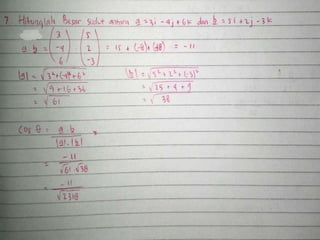 7. Hitunglah Besar sudut antara a = 3i - 4j + 6k dan b = 5i + 2j - 3k
a.b = (3 -4 6) . (5 2 -3) = 15 + (-8) + (-18) = -11
|a| = √3²+(-4)²+6² |b| = √5²+2²+(-3)²
= √9+16+36 = √25+4+9
= √61 = √38
cos θ = a.b / |a|.|b|
= -11 / √61 √38
= -11 / √2318